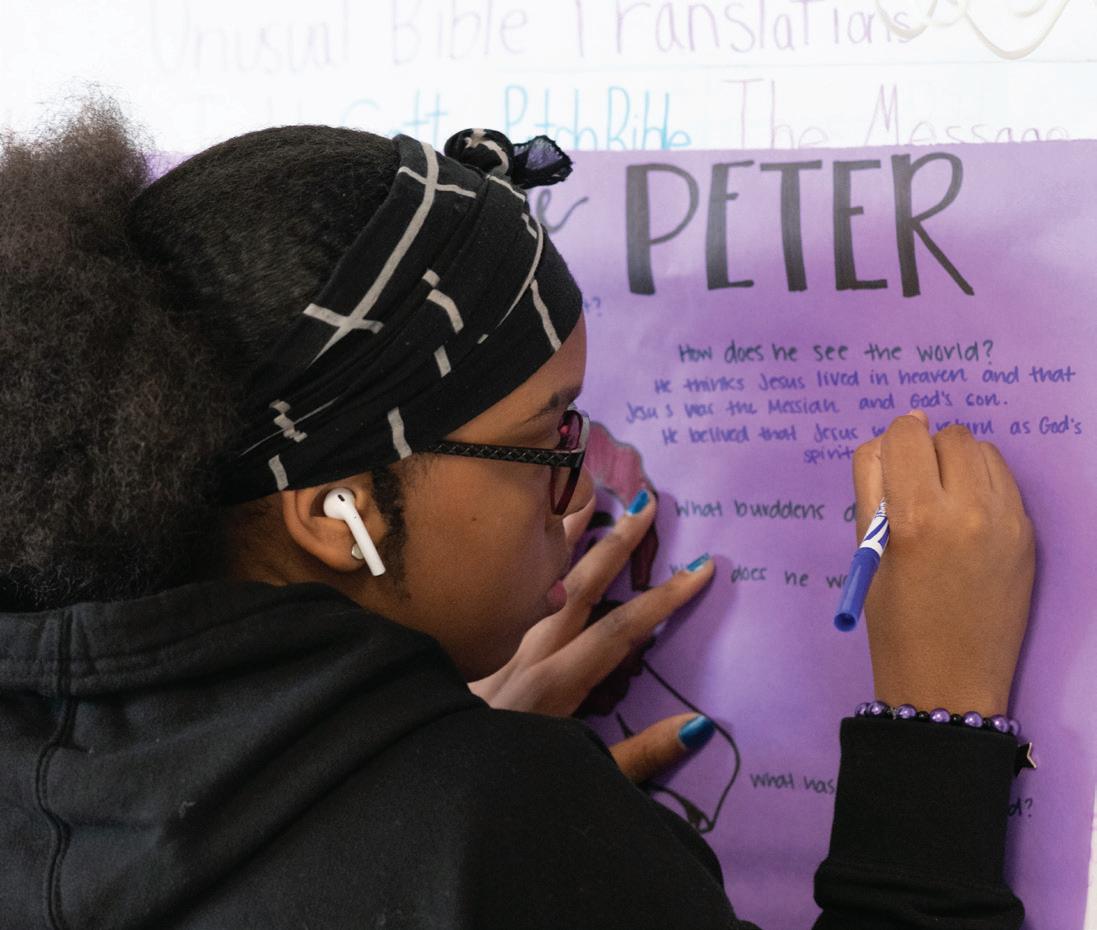 Unusual Bible Translations
Bible The Message
PETER
How does he see the world?
He thinks Jesus lived in heaven and that
Jesus was the Messiah and God's con.
He belived that Jesus return as God's
spirit
What burddens
does he
what has